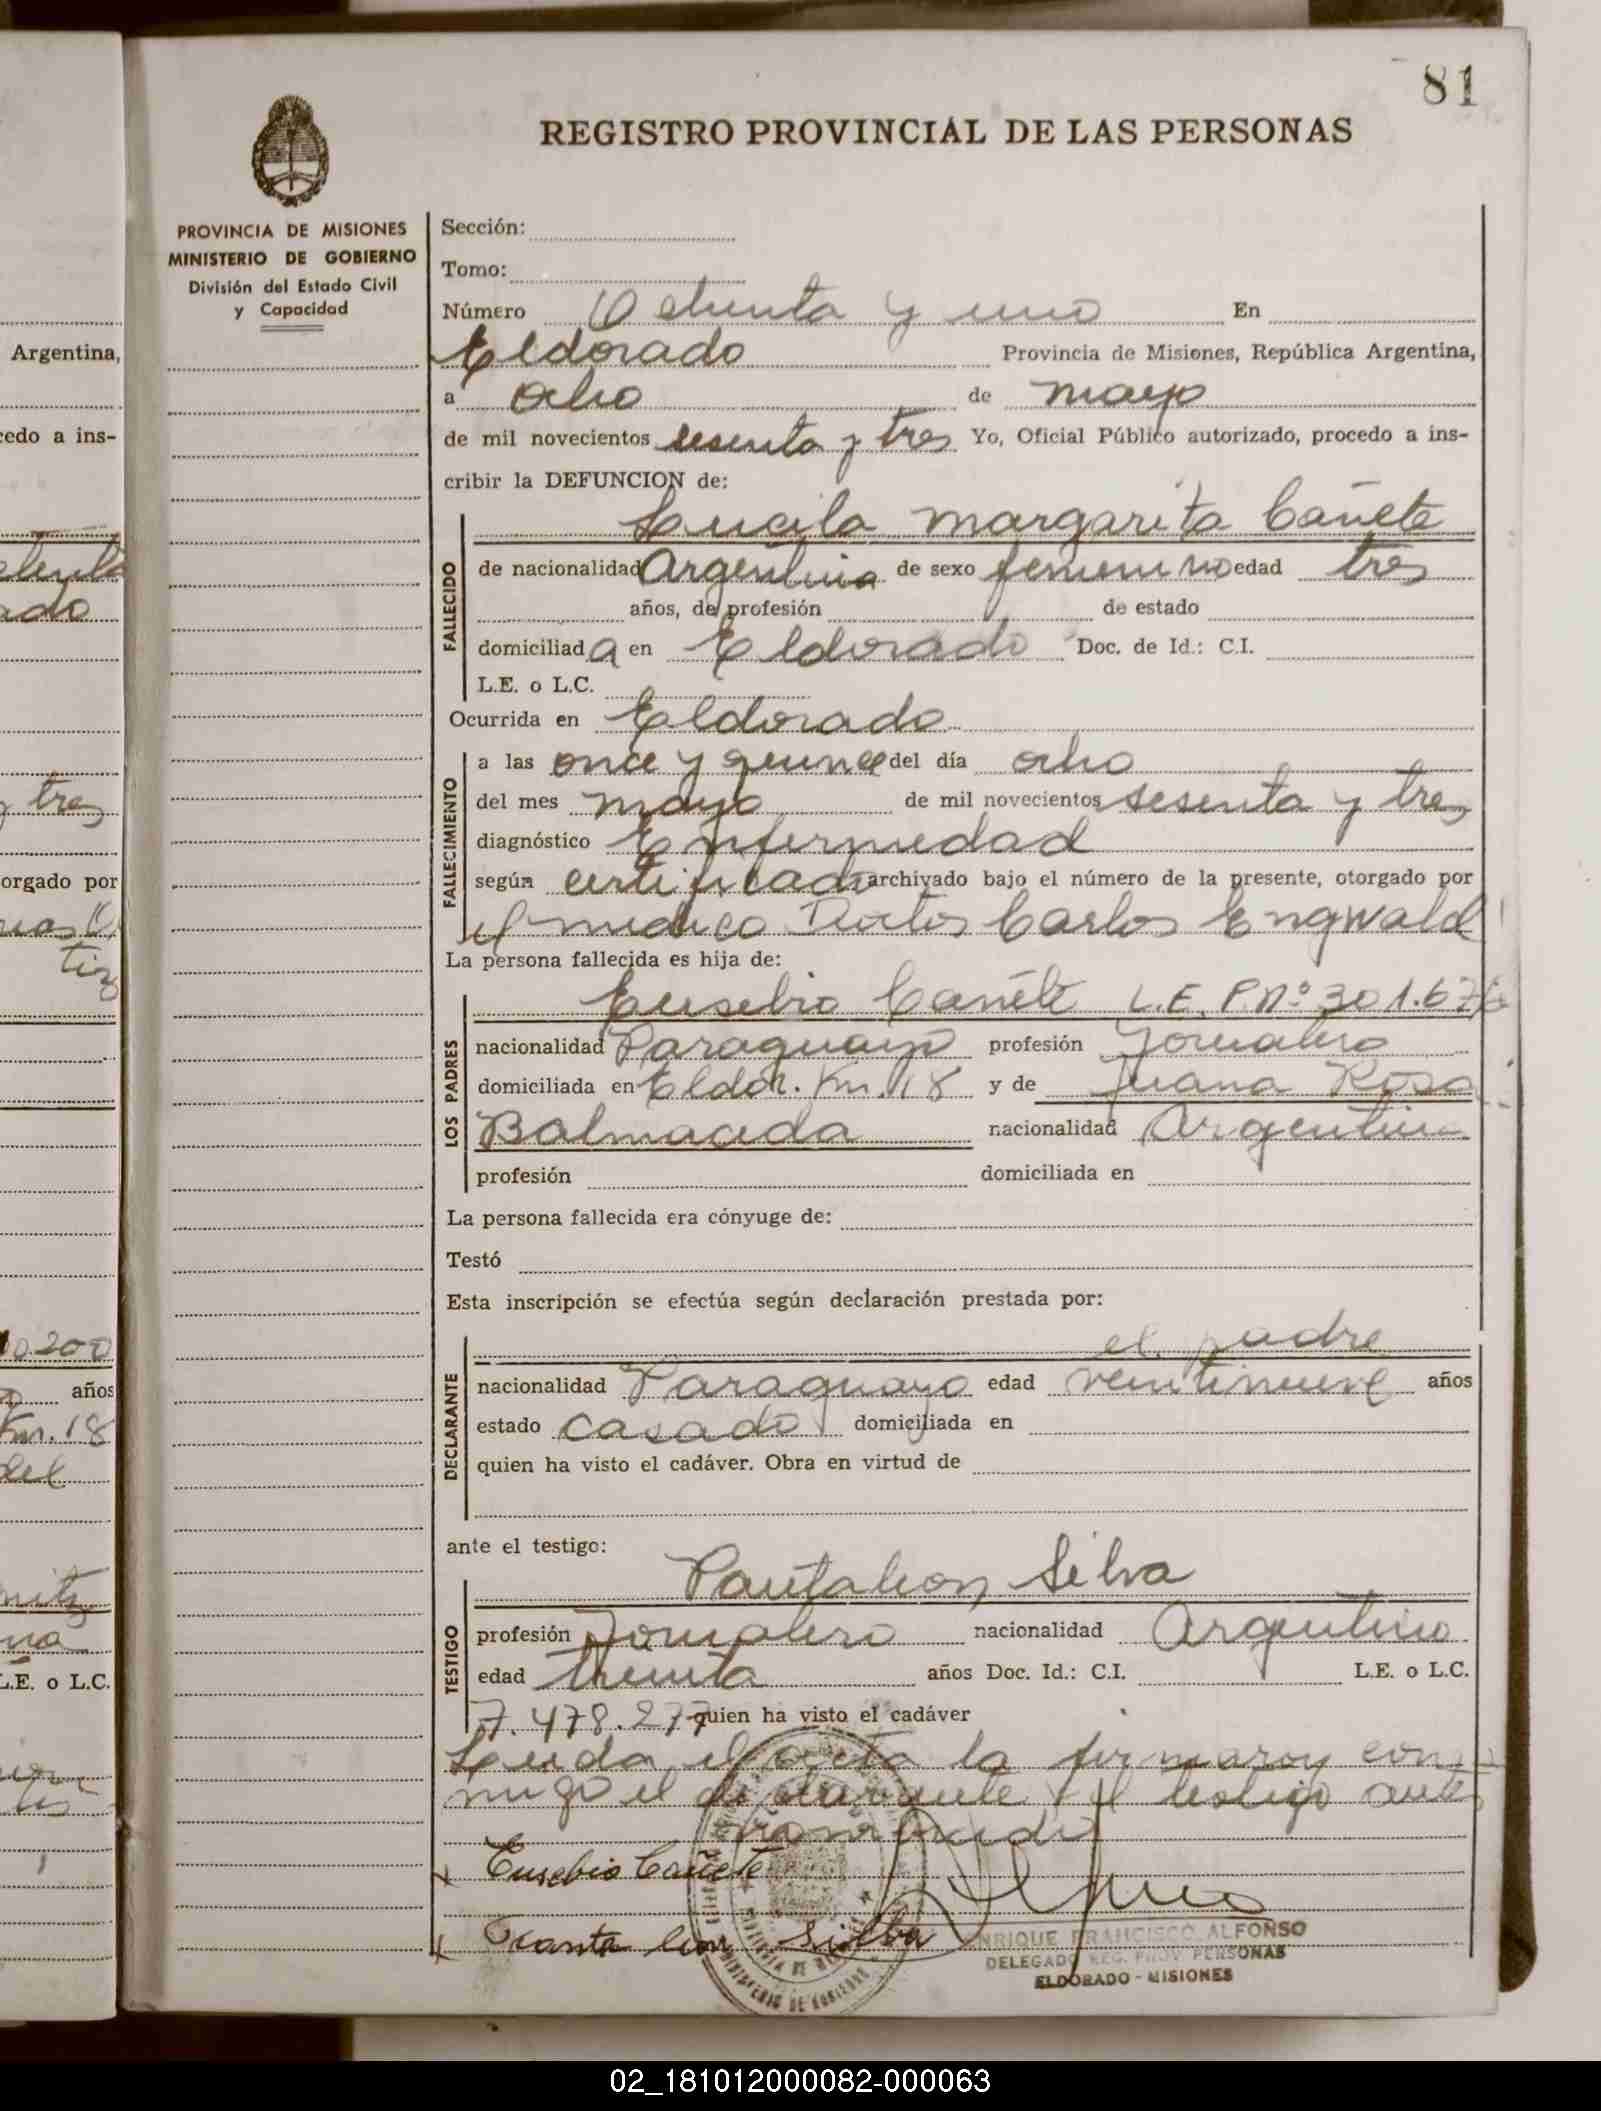 81
REGISTRO PROVINCIAL DE LAS PERSONAS
PROVINCIA DE MISIONES
MINISTERIO DE GOBIERNO
División del Estado Civil
y Capacidad
Sección:
Tomo:
Número Ochenta y uno En
Eldorado Provincia de Misiones, República Argentina,
a ocho de mayo
de mil novecientos sesenta y tres Yo, Oficial Público autorizado, procedo a ins-
cribir la DEFUNCION de:
Lucila Margarita Cañete
FALLECIDO
de nacionalidad Argentina de sexo femenino edad tres
años, de profesión de estado
domiciliad a en Eldorado Doc. de Id.: C.I.
L.E. o L.C.
Ocurrida en Eldorado
FALLECIMIENTO
a las once y quince del día ocho
del mes mayo de mil novecientos sesenta y tres
diagnóstico Enfermedad
según certificado archivado bajo el número de la presente, otorgado por
el medico Carlos Engwald
La persona fallecida es hija de:
Eusebio Cañete L.E. P.Nº 301.676
LOS PADRES
nacionalidad Paraguayo profesión Jornalero
domiciliada en Eldor. Km. 18 y de Juana Rosa
Balmaceda nacionalidad Argentina
profesión domiciliada en
La persona fallecida era cónyuge de:
Testó
Esta inscripción se efectúa según declaración prestada por:
el padre
DECLARANTE
nacionalidad Paraguayo edad veintinueve años
estado casado domiciliada en
quien ha visto el cadáver. Obra en virtud de
ante el testigo:
Pantaleon Silva
TESTIGO
profesión Jornalero nacionalidad Argentino
edad treinta años Doc. Id.: C.I. L.E. o L.C.
7.478.277 quien ha visto el cadáver
Leida el acta la firmaron con
migo el declarante y el testigo antes
nombrado
Eusebio Cañete
Silva
ENRIQUE FRANCISCO ALFONSO
DELEGADO REG. PROV. PERSONAS
ELDORADO - MISIONES
MINISTERIO DE GOBIERNO
Argentina,
cedo a ins-
y tres
orgado por
10.200
años
Km. 18
L.E. o L.C.
02_181012000082-000063